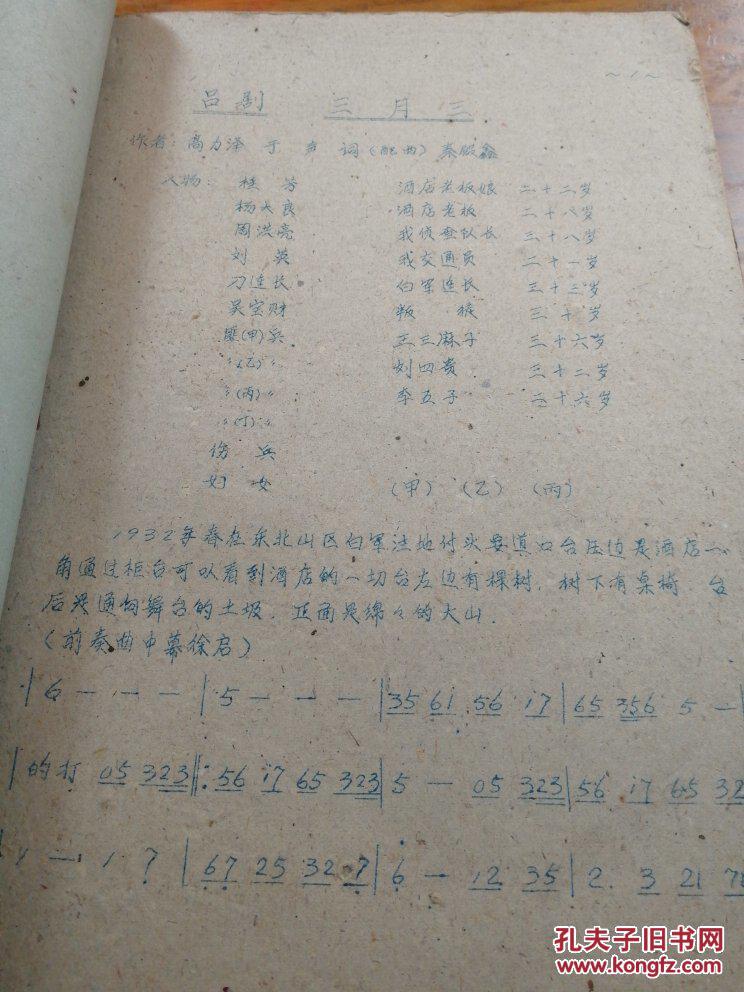 ~1~
吕剧 三月三
作者:高力泽 于声 词(配曲)秦殿鑫
人物: 桂芳 酒店老板娘 二十二岁
杨大良 酒店老板 二十八岁
周洪亮 我侦查队长 三十八岁
刘英 我交通员 二十一岁
刁连长 白军连长 三十三岁
吴宝财 叛徒 三十岁
匪(甲)兵 王三麻子 三十六岁
〃(乙)〃 刘四贵 三十二岁
〃(丙)〃 李五子 二十六岁
〃(丁)〃
伤兵
妇女 (甲) (乙) (丙)
1932年春在东北山区白军洼地付火要道口台压边是酒店一
角通过柜台可以看到酒店的一切台左边有棵树.树下有桌椅 台
后是通向舞台的土圾.正面是绵々的大山.
(前奏曲中幕徐启)
| 6 — — — | 5 — — — | 35 61 56 i7 | 65 356 5 — |
| 的打 05 323 ‖: 56 i7 65 323 | 5 — 05 323 | 56 i7 65 32
1 — 1 7 | 67 25 32 7 | 6 — 12 35 | 2. 3 21
孔夫子旧书网
www.kongfz.com